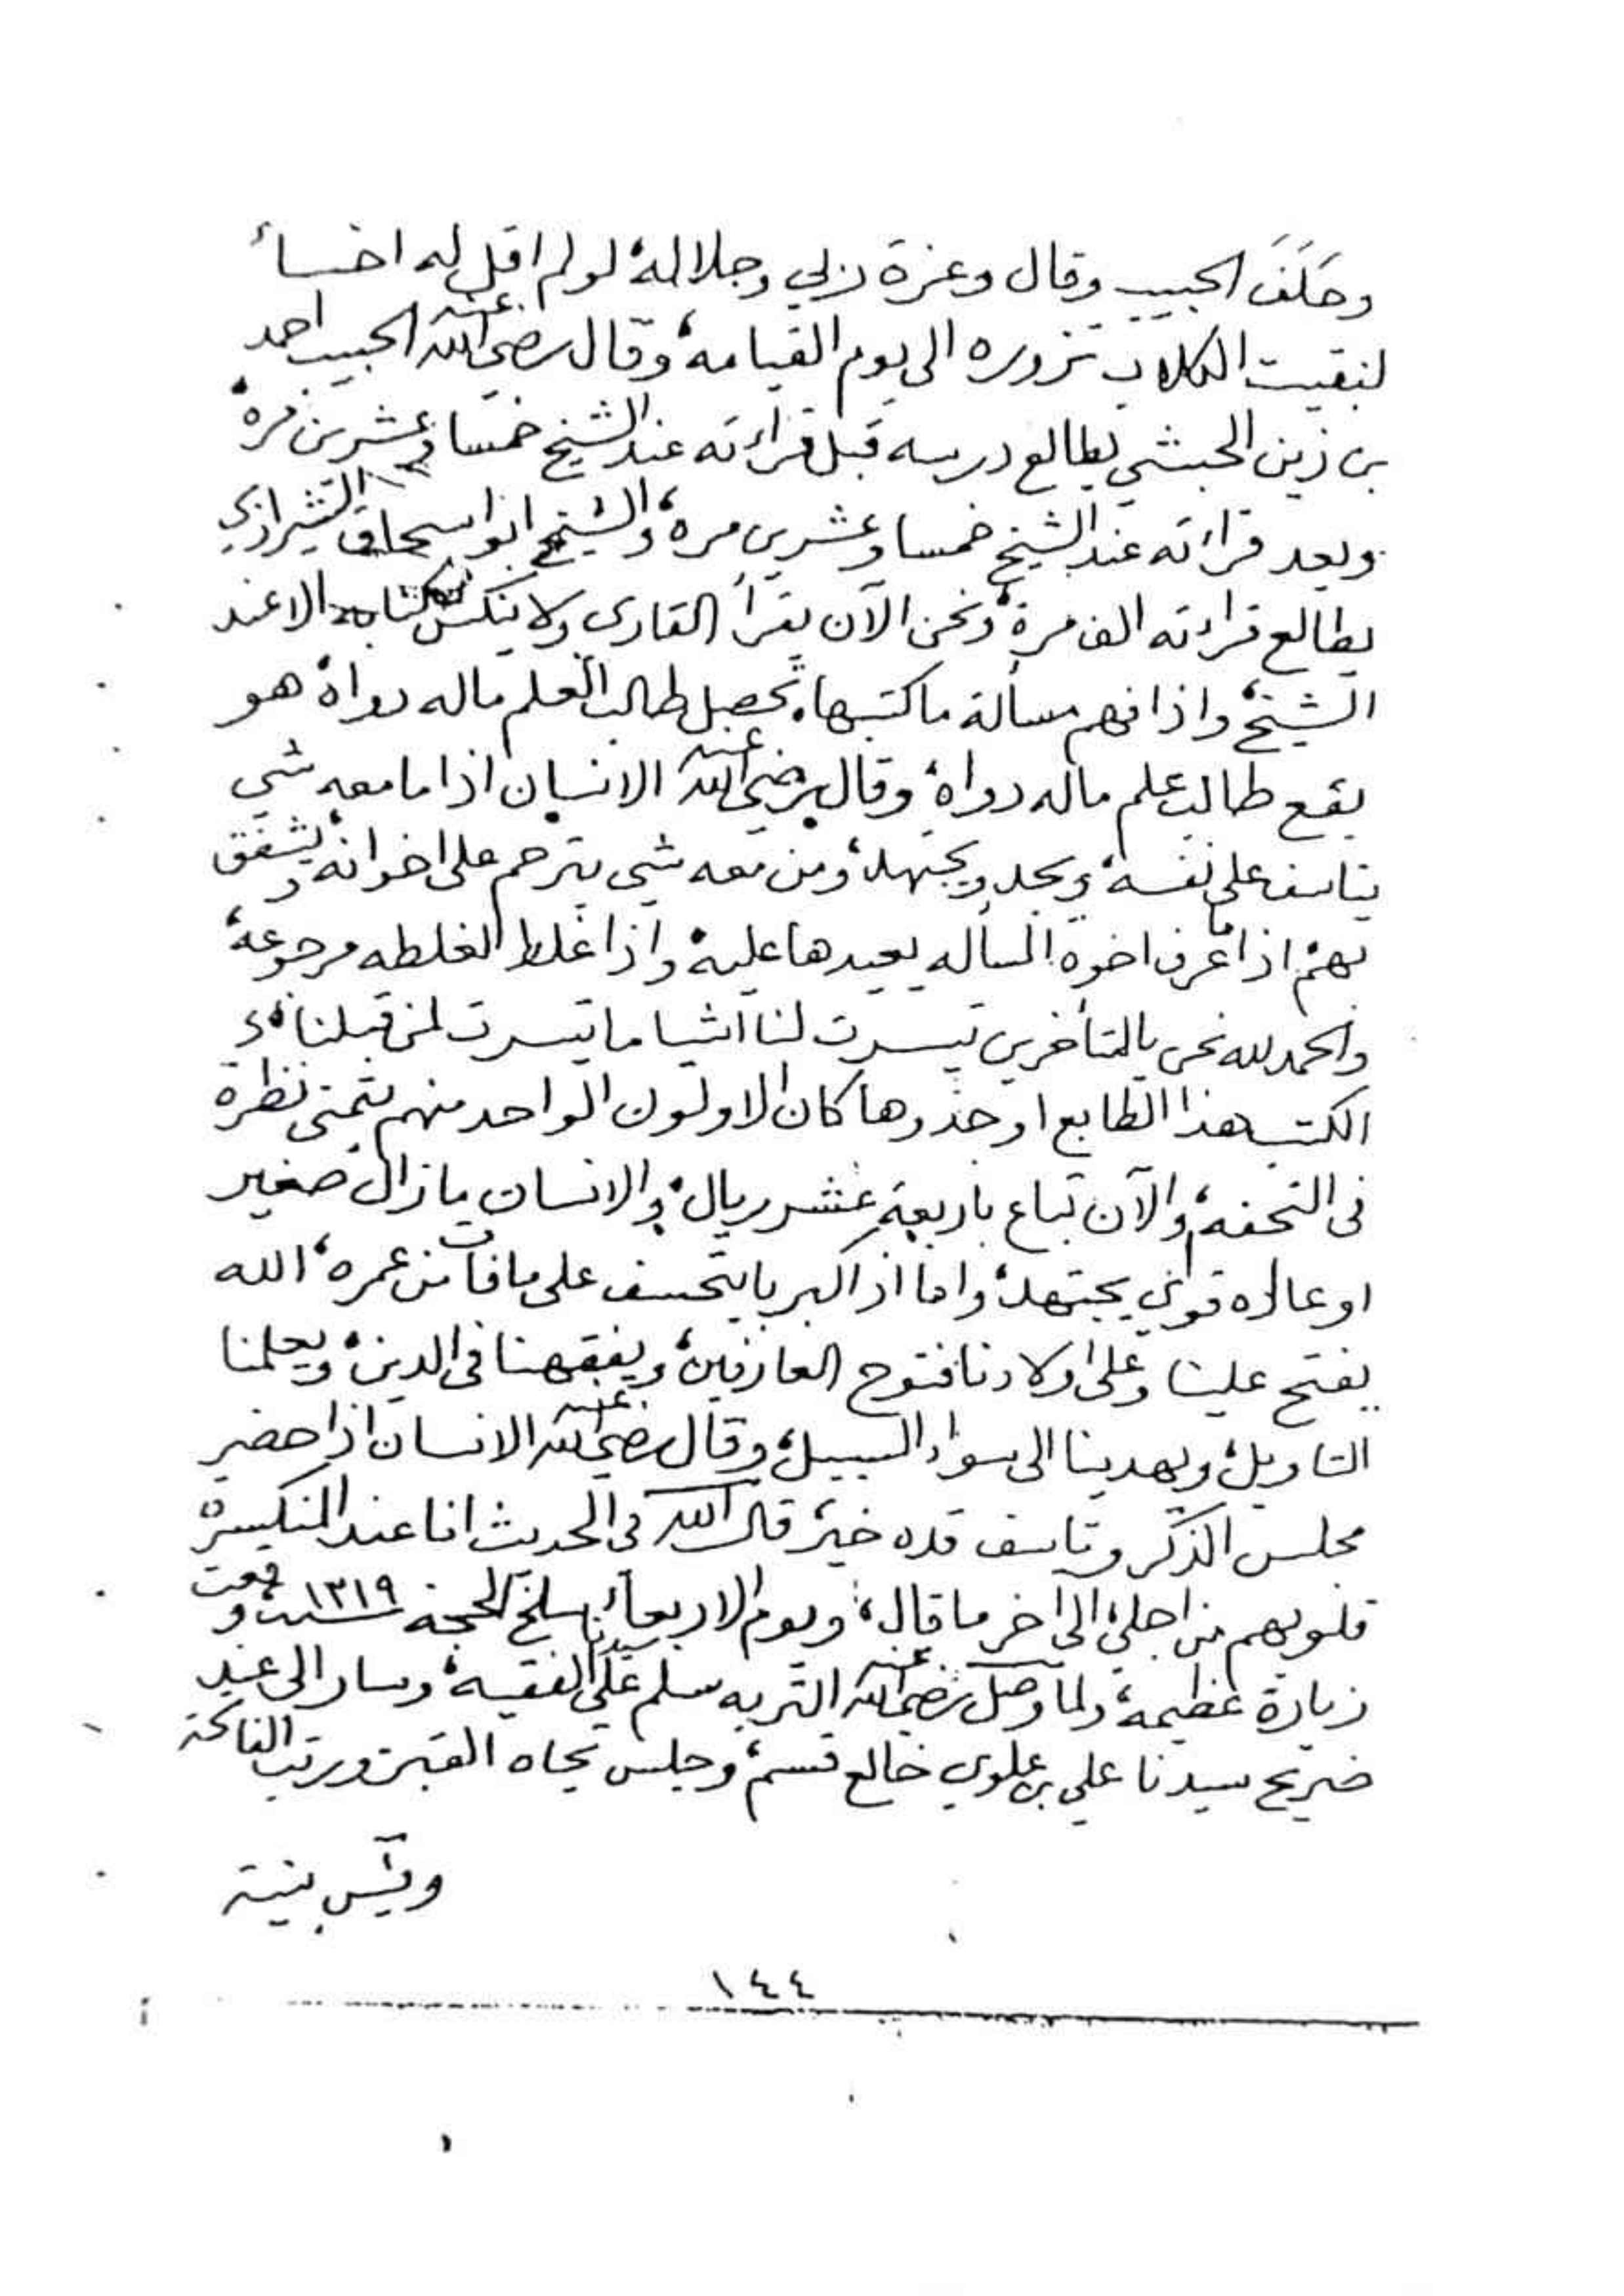 وحَلَفَ الحبيب وقال وعزة ربي وجلاله لولم اقل له اخساء
لبقيت الكلاب تزوره الى يوم القيامه، وقال رضي الله عنه الحبيب احمد
بن زين الحبشي يطالع درسه قبل قراءته عند الشيخ خمسا وعشرين مره
وبعد قراءته عند الشيخ خمسا وعشرين مره، والشيخ ابو اسحاق الشيرازي
يطالع قراءته الف مرة، ونحن الآن يقرأ القارى ولا ينكش كتابه الا عند
الشيخ، واذا فهم مسألة ما كتبها، تحصل طالب العلم ماله دواة هو
يقع طالب علم ماله دواه، وقال رضي الله عنه الانسان اذا ما معه شي
يتاسف على نفسه، ويجد ويجتهد، ومن معه شي يترحم على اخوانه ويشفق
بهم، اذا ما عرف اخوه المسأله يعيدها عليه، واذا غلط الغلطه مرجوعة
والحمد لله نحن يالمتأخرين تيسرت لنا اشيا ما تيسرت لمن قبلنا،
الكتب هذا الطابع اوجدوها كان الاولون الواحد منهم يتمنى نظرة
فى التحفه، والآن تباع باربعة عشر ريال، والانسان ما زال صغير
او عاده قوي يجتهد، واما اذا كبر با يتحسف على ما فات من عمره، الله
يفتح علينا وعلى اولادنا فتوح العارفين، ويفقهنا فى الدين، ويعلمنا
التاويل، ويهدينا الى سواء السبيل، وقال رضي الله عنه الانسان اذا حضر
مجلس الذكر وتاسف قده خير، قال الله فى الحديث انا عند المنكسرة
قلوبهم من اجلي، الى اخر ما قال، ويوم الاربعاء سلخ الحجة سنة ١٣١٩ وقعت
زيارة عظيمة، ولما وصل رضي الله عنه التربه سلم على سيدنا الفقيه، وسار الى عند
ضريح سيدنا علي بن علوي خالع قسم، وجلس تجاه القبر ورتب الفاتحة
ويٓس بنية
١٤٤